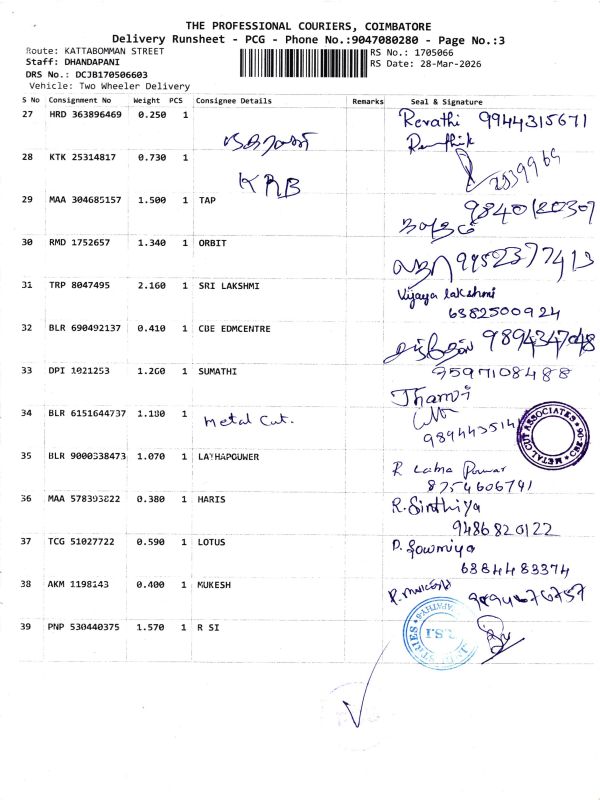 THE PROFESSIONAL COURIERS, COIMBATORE
Delivery Runsheet - PCG - Phone No.:9047080280 - Page No.:3
Route: KATTABOMMAN STREET
Staff: DHANDAPANI
DRS No.: DCJB170506603
Vehicle: Two Wheeler Delivery
RS No.: 1705066
RS Date: 28-Mar-2026
S No Consignment No Weight PCS Consignee Details Remarks Seal & Signature
27 HRD 363896469 0.250 1 Revathi 9944315671
28 KTK 25314817 0.730 1 KRB
29 MAA 304685157 1.500 1 TAP 9840120307
30 RMD 1752657 1.340 1 ORBIT 9952377413
31 TRP 8047495 2.160 1 SRI LAKSHMI Vijaya lakshmi
6382500924
32 BLR 690492137 0.410 1 CBE EDMCENTRE 9894347048
33 DPI 1021253 1.260 1 SUMATHI 7597108488
34 BLR 6151644737 1.180 1 Metal Cut.
METAL CUT ASSOCIATES
35 BLR 9000338473 1.070 1 LATHAPOUWER
8754606741
36 MAA 578393822 0.380 1 HARIS R. Sinthiya
9486820122
37 TCG 51027722 0.590 1 LOTUS D. Sowmiya
6384483374
38 AKM 1198143 0.400 1 MUKESH
39 PNP 530440375 1.570 1 R SI